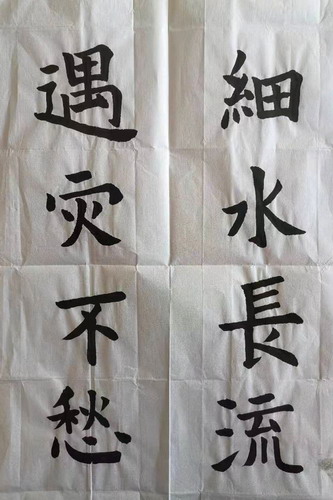 細水長流
遇灾不愁